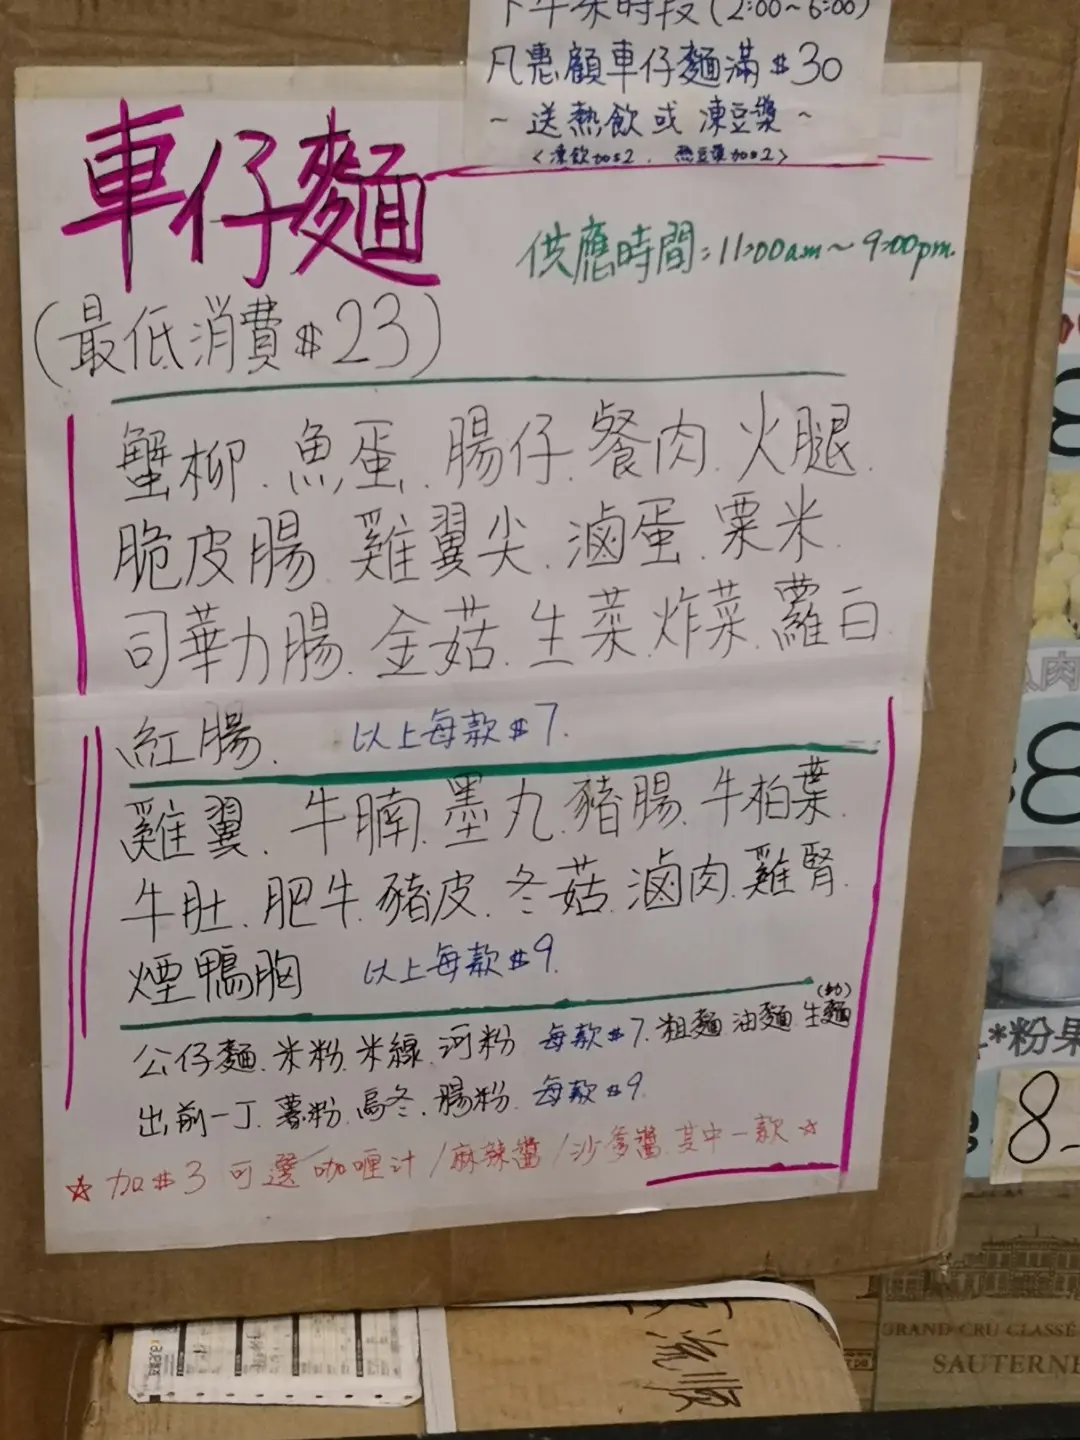 下午茶時段(2:00~6:00)
凡惠顧車仔麵滿$30
~送熱飲或凍豆漿~
<凍飲加$2. 熱豆漿加$2>
車仔麵
供應時間:11:00am~9:00pm.
(最低消費$23)
蟹柳.魚蛋.腸仔.餐肉.火腿.
脆皮腸.雞翼尖.滷蛋.粟米.
司華力腸.金菇.生菜.炸菜.蘿白
紅腸. 以上每款$7.
雞翼.牛腩.墨丸.豬腸.牛柏葉
牛肚.肥牛.豬皮.冬菇.滷肉.雞腎.
煙鴨胸 以上每款$9.
公仔麵.米粉.米線.河粉 每款$7.粗麵 油麵 生麵(幼)
出前一丁.薯粉.烏冬.腸粉. 每款$9.
☆加$3可選咖喱汁/麻辣醬/沙爹醬.其中一款☆
肉
8
8
*粉果
8
GRAND CRU CLASSÉ
SAUTERNE